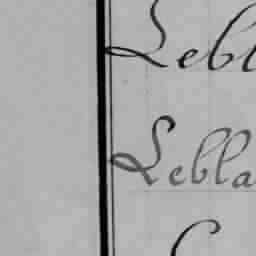 Lebl
Lebla